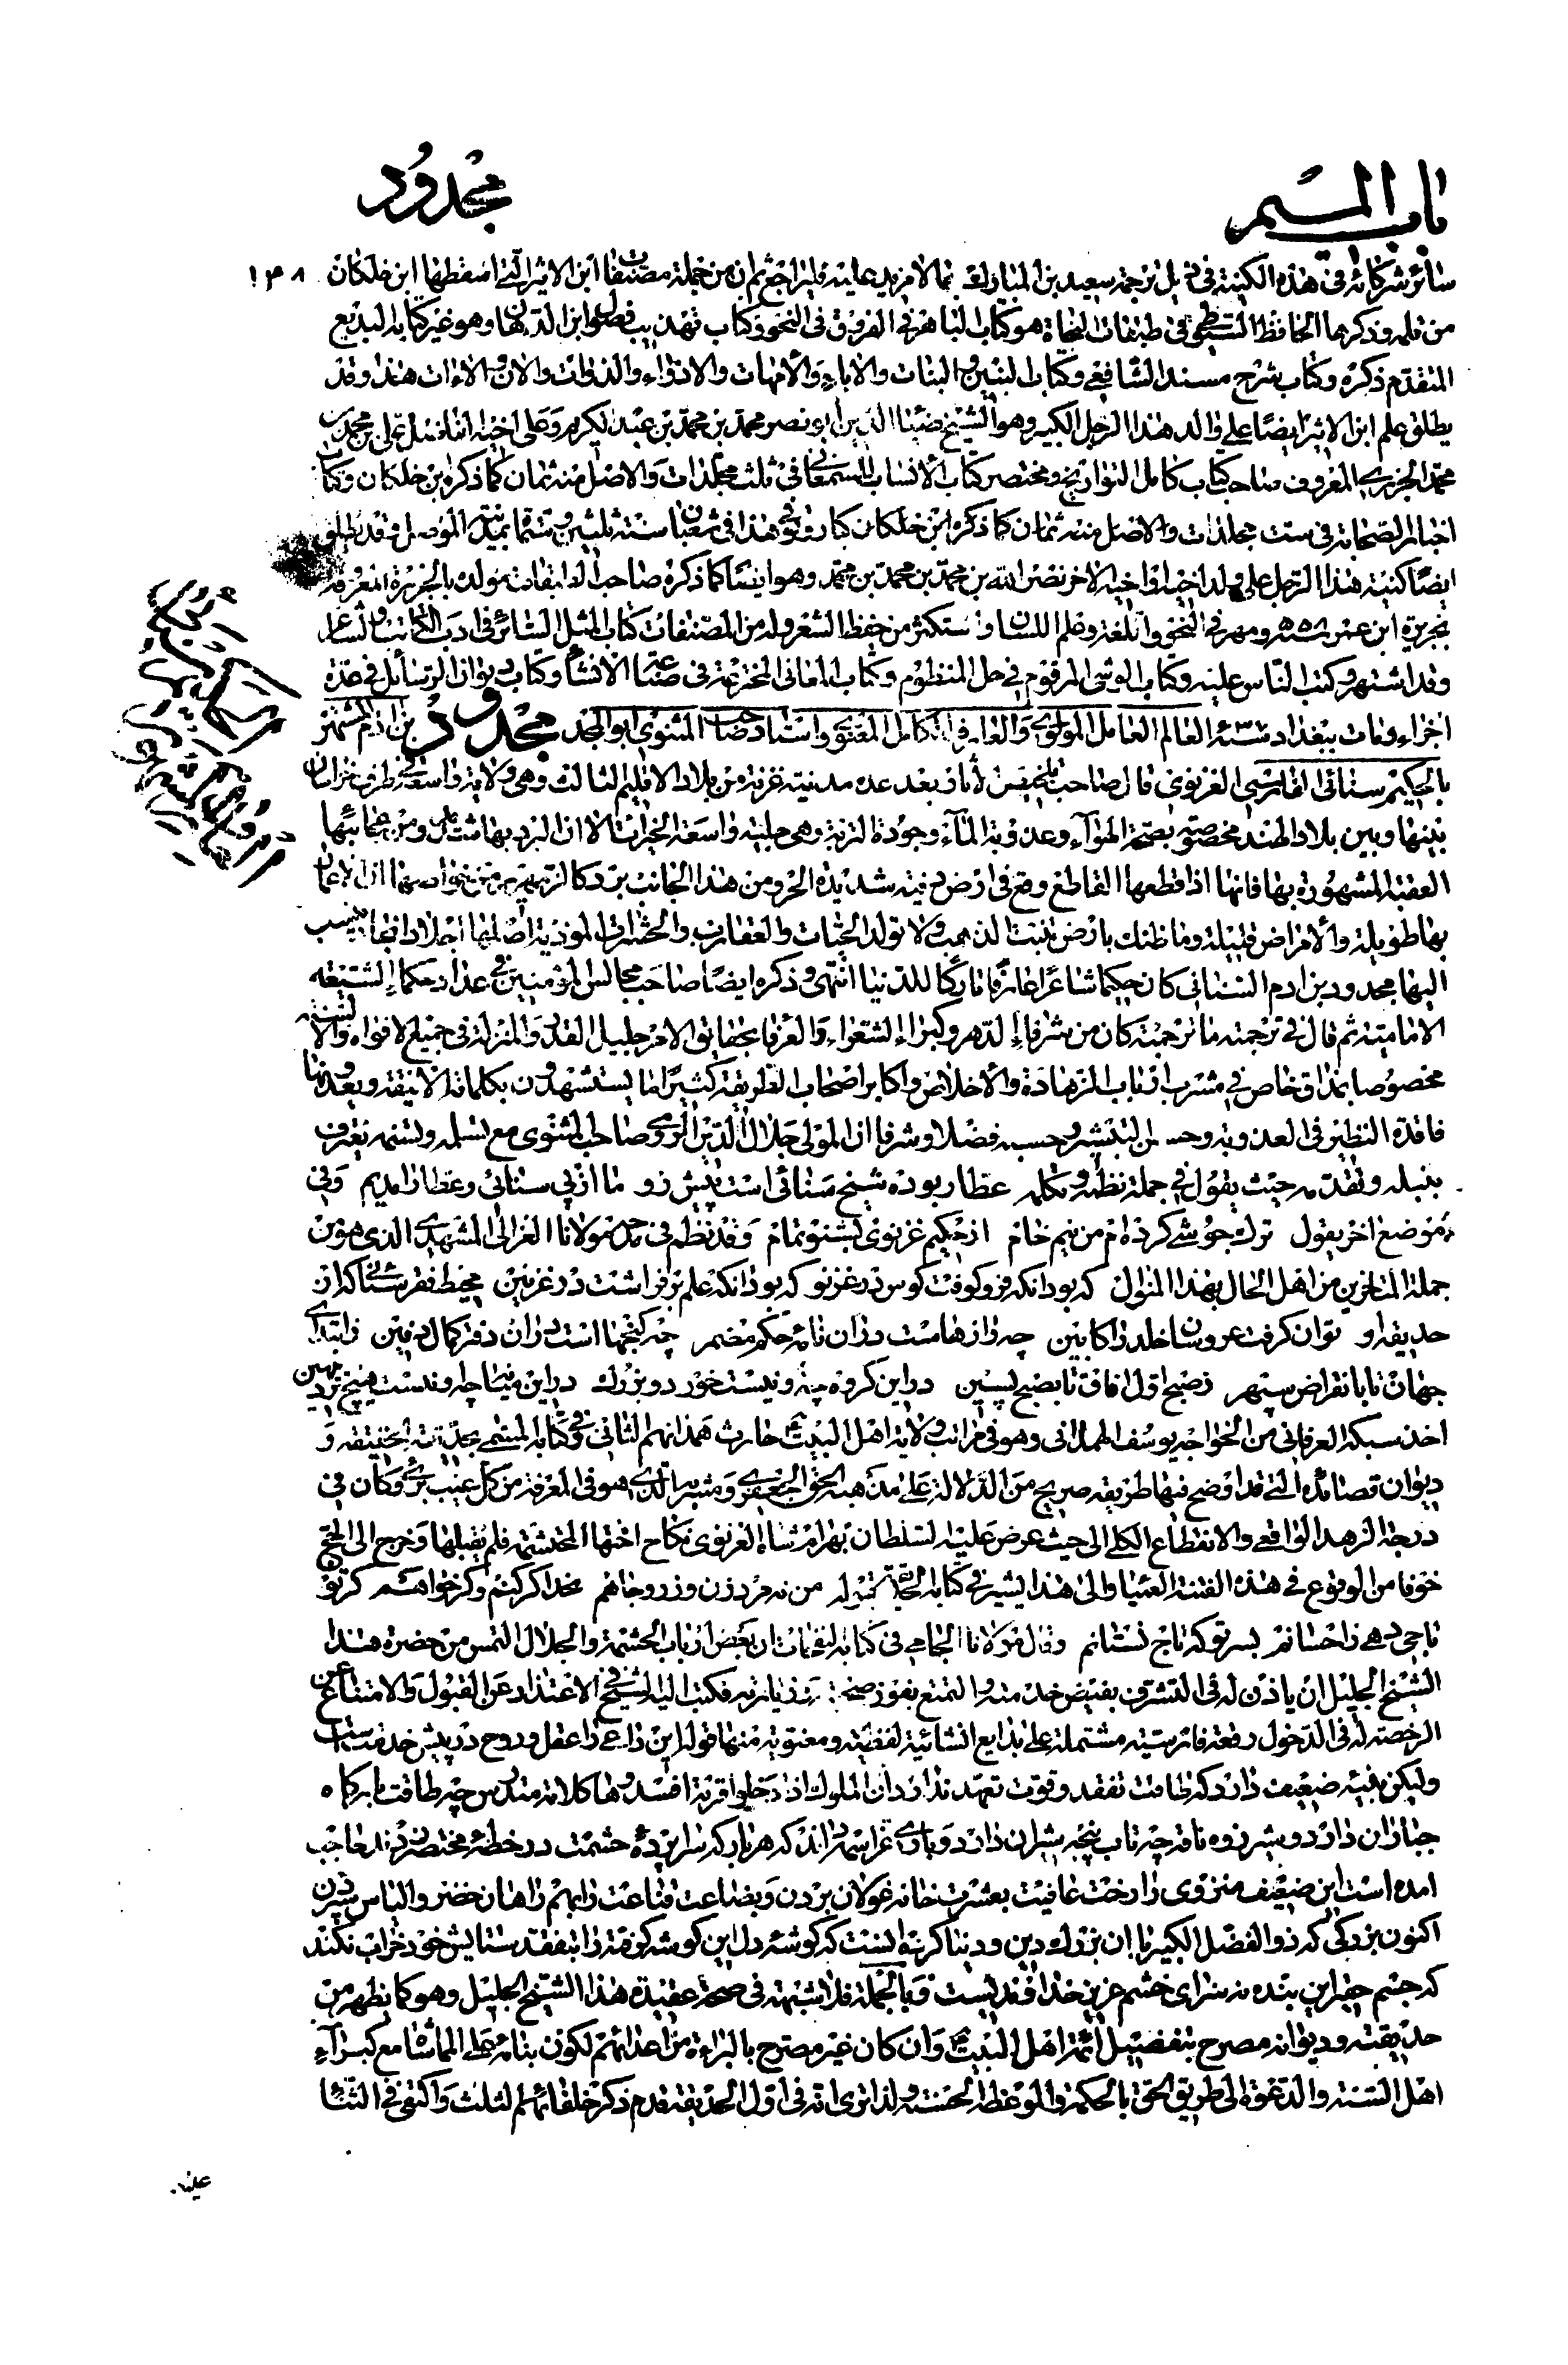 باب الميم
مجدود
سائر شركائه في هذه الكنية في ذيل ترجمة سعيد بن المبارك بما لا مزيد عليه فليراجع ثم ان من جملة مصنفات ابن الاثير التي اسقطها ابن خلكان ١٣٨
من قلمه وذكرها الحافظ السيوطي في طبقات النحاة هو كتاب الباهر في الفروق في النحو وكتاب تهذيب فصول ابن الدهان وهو غير كتابه البديع
المتقدم ذكره وكتاب شرح مسند الشافعي وكتاب البنين والبنات والاباء والأمهات والاذواء والذوات هذا وقد
يطلق علم ابن الاثير ايضًا على والد هذا الرجل الكبير وهو الشيخ ضياء الدين ابو نصر محمد بن محمد بن عبد الكريم وعلى اخيه علي بن محمد بن
محمد الجزري المعروف صاحب كتاب كامل التواريخ ومختصر كتاب الأنساب للسمعاني في ثلث مجلدات والاصل منه ثمان كما ذكره ابن خلكان وكتاب
اخبار الصحابة في ست مجلدات والاصل منه ثمان كما ذكره ابن خلكان وتوفي هذا في شعبان سنة ثلثين وستمائة بمدينة الموصل وقد يطلق
ايضًا كنية هذا الرجل على ولد اخيه الاخر نصر الله بن محمد بن محمد بن محمد وهو ايضًا كما ذكره صاحب الطبقات مولده بالجزيرة المعروفة
بجزيرة ابن عمر سنة ٥٥٨ ومهر في النحو واللغة وعلم اللسان واستكثر من حفظ الشعر وله من المصنفات كتاب المثل السائر في ادب الكاتب والشاعر
وقد اشتهر وكتب الناس عليه وكتاب الوشى المرقوم في حل المنظوم وكتاب المعاني المخترعة في صناعة الانشاء وكتاب ديوان الرسائل في عدة
اجزاء ومات ببغداد سنة العالم العامل المولوي والعارف الكامل المعنوي واستاد صاحب المثنوي ابو المجد مجدود بن ادم المشتهر
بالحكيم سنائي الفارسي الغزنوي قال صاحب تلخيص الاثار بعد عده مدينة غزنة من بلاد الاقليم الثالث وهي ولاية واسعة في طرف خراسان
بينها وبين بلاد الهند مخصوصة بصحة الهواء وعذوبة الماء وجودة التربة وهي جبلية واسعة الخيرات الا ان البرد بها شديد ومن عجائبها
العقبة المشهورة بها فانها اذا قطعها القاطع وقع في ارض دفيئة شديدة الحر ومن هذا الجانب برد كالزمهرير ومن خواصها ان الاعمار
بها طويلة والأمراض قليلة وما ظنك بارض تنبت الذهب ولا تولد الحيات والعقارب والحشرات المؤذية ينسب
اليها مجدود بن ادم السنائي كان حكيما شاعرًا عارفًا تاركًا للدنيا انتهى وذكره ايضًا صاحب مجالس المؤمنين في عداد حكماء الشيعة
الامامية ثم قال في ترجمته ما ترجمته كان من شرفاء الدهر وكبراء الشعراء والعرفا بحقايق الامر جليل القدر والمنزلة في جميع الافواه والالسنة
مخصوصا بمذاق خاص في مشرب ارباب الزهادة والأخلاص واكابر اصحاب الطريقة كثيرًا ما يستشهدون بكلماته الانيقة ويعدونها
فاقدة النظير في العذوبة وحسن التبشير وحسبه فضلا وشرفا ان المولى جلال الدين الرومي صاحب المثنوي مع يعرف
بنبله وتقدمه حيث يقول في جملة نظمه وتكلمه عطار بوده شيخ سنائي است پيش رو ما از پی سنائی و عطار امديم وفي
موضع اخر يقول ترك جوشى كرده ام من نيم خام از حكيم غزنوى بشنو تمام وقد نظم في حقه مولانا الغزالي المشهدي الذي هو من
جملة المتاخرين من اهل الحال بهذا المنوال كه بود انكه فرو كوفت كوس در غزنو كه بود انكه علم بر فراشت در غزنين محيط فقر سنائی كه از
حديقه او توان كرفت عروسان خلد را كابين چه رازهاست در ان نامه حكم مضمر چه كنجها است در ان دفتر كمال دفين ز ابتداى
جهان تا بانقراض سپهر ز صبح اول افاق تا بصبح پسين در اين كروه چه او نيست خورد و بزرك در اين ميانه چه او نيست هيچ
اخذ سبكه العرفاني من الخواجه يوسف الهمداني وهو في مراتب ولاية اهل البيت حارث همدانهم الثاني وفي كتابه المسمى بحديقة الحقيقة و
ديوان قصائده التي قد اوضح فيها طريقه صريح من الدلالة على مذهبه الحق الجعفري ومشربه الذي هو في المعرفة من كل عيب بري وكان في
درجة الزهد الواقعي والانقطاع الكلي الى حيث عرض عليه السلطان بهرامشاه الغزنوي نكاح اختها المحتشمة فلم يقبلها وخرج الى الحج
خوفا من الوقوع في هذه الفتنة العميا والى هذا يشير في كتابه الحديقة بقوله من نه مرد زن و زر و جاهم بخدا كر كنم وكر خواهم كر تو
تاجى دهى ز احسانم بسر تو كه تاج نستانم وقال مولانا الجامي في كتابه النفحات ان بعض ارباب الحشمة والجلال التمس من حضرة هذا
الشيخ الجليل ان ياذن له في التشرف بفيض خدمته والتمتع بفوز زيارته فكتب اليه الشيخ في الاعتذار عن القبول والامتناع عن
الرخصة له في الدخول رقعة فارسية مشتملة على بدايع انشائية لفظية ومعنوية منها قوله اين داعى را عقل و روح در پيش خدمت است
وليكن بنيه ضعيف دارد كه طاقت تفقد و قوت تعهد ندارد ان الملوك اذا دخلوا قرية افسدوها كلاته مندرس چه طاقت باركاه
جباران دارد و شير زده ناقه چه تاب پنجه شيران دارد كه هر بار كه سراپرده حشمت در خطه مختصر
امده است اين ضعيف منزوى را رخت عافيت بعشرت خانه غولان بردن و بضاعت قناعت را بهم راهان خضر والياس سپردن
اكنون بزركى كه ذو الفضل الكبير با ان بزرك دين و دنيا كرده است كه كوشه دل اين كوشه كرفته را بتفقد ستايش خود خراب نكند
كه جسم حقير اين بنده نه سزاى خشم عزيز خداوند است وبالجملة فلا شبهة في صحة عقيدة هذا الشيخ الجليل وهو كما يظهر من
حديقته وديوانه مصرح بتفضيل ائمة اهل البيت وان كان غير مصرح بالبراءة من اعدائهم لكون بنائه على المماشاة مع كبراء
اهل السنة والدعوة الى طريق الحق بالحكمة والموعظة الحسنة ولذا ترى انه في اول الحديقة قدم ذكر خلفائهم الثلث واكتفى في الثناء
عليه